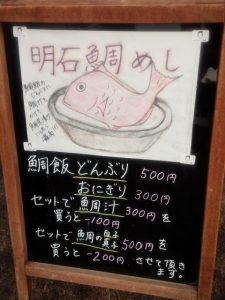 明石鯛めし
鯛飯 どんぶり 500円
おにぎり 300円
セットで 鯛汁 300円を
買うと -100円
セットで 鯛の白子 真子 500円を
買うと -200円 させて頂き
ます。